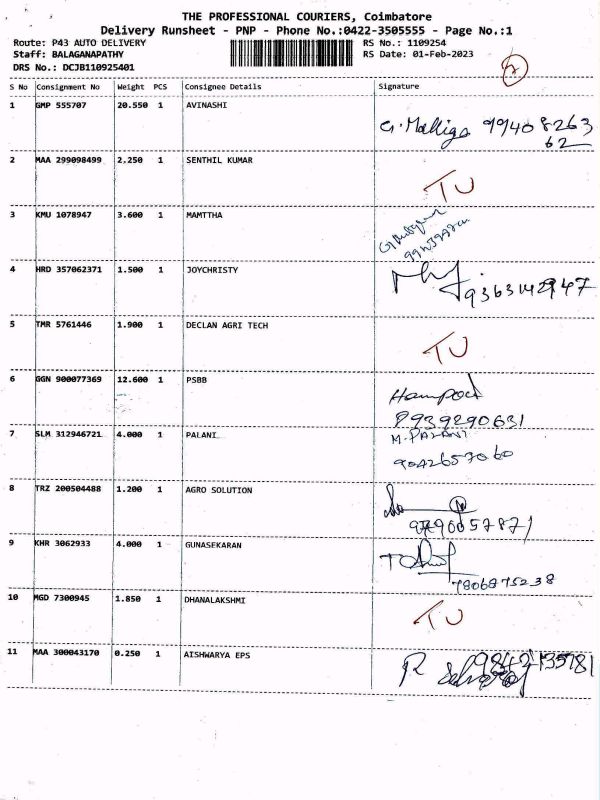 THE PROFESSIONAL COURIERS, Coimbatore
Delivery Runsheet - PNP - Phone No.:0422-3505555 - Page No.:1
Route: P43 AUTO DELIVERY RS No.: 1109254
Staff: BALAGANAPATHY RS Date: 01-Feb-2023
DRS No.: DCJB110925401
2
S No Consignment No Weight PCS Consignee Details Signature
1 GMP 555707 20.550 1 AVINASHI
G. Malliga 99408263
62
2 MAA 299098499 2.250 1 SENTHIL KUMAR
TU
3 KMU 1078947 3.600 1 MAMTTHA
4 HRD 357062371 1.500 1 JOYCHRISTY
9363142947
5 TMR 5761446 1.900 1 DECLAN AGRI TECH
TU
6 GGN 900077369 12.600 1 PSBB
8939290631
7 SLM 312946721 4.000 1 PALANI
M. PALANI
9042657060
8 TRZ 200504488 1.200 1 AGRO SOLUTION
9 KHR 3062933 4.000 1 GUNASEKARAN
7806875238
10 MGD 7300945 1.850 1 DHANALAKSHMI
TU
11 MAA 300043170 0.250 1 AISHWARYA EPS